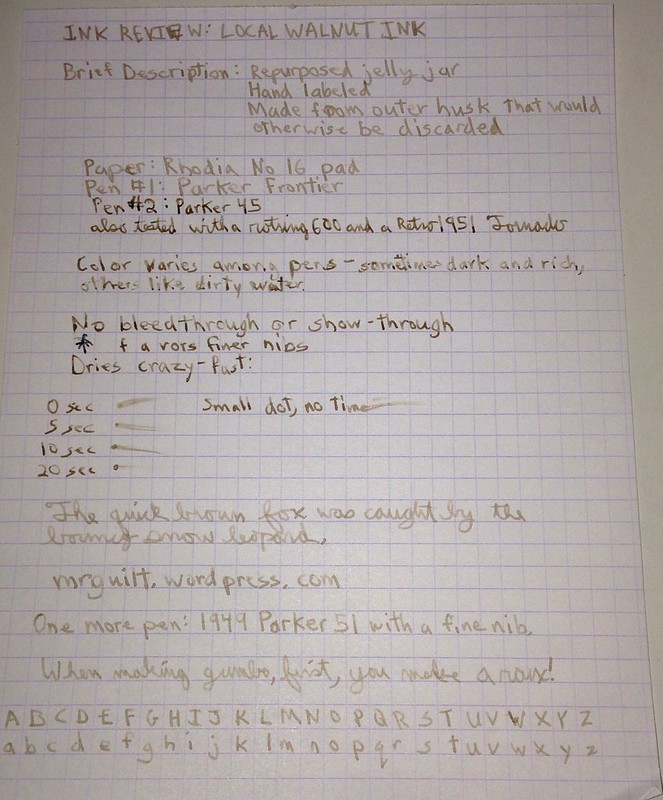 INK REVIEW: LOCAL WALNUT INK
Brief Description: Repurposed jelly jar
Hand labeled
Made from outer husk that would
otherwise be discarded
Paper: Rhodia No 16 pad
Pen #1: Parker Frontier
Pen #2: Parker 45
also tested with a rotring 600 and a Retro 1951 Tornado
Color varies among pens - sometimes dark and rich,
others like dirty water.
No bleedthrough or show-through
* favors finer nibs
Dries crazy-fast:
0 sec Small dot, no time
5 sec
10 sec
20 sec
The quick brown fox was caught by the
snow leopard.
mrguilt.wordpress.com
One more pen: 1949 Parker 51 with a fine nib.
When making gumbo, first, you make a roux!
A B C D E F G H I J K L M N O P Q R S T U V W X Y Z
a b c d e f g h i j k l m n o p q r s t u v w x y z